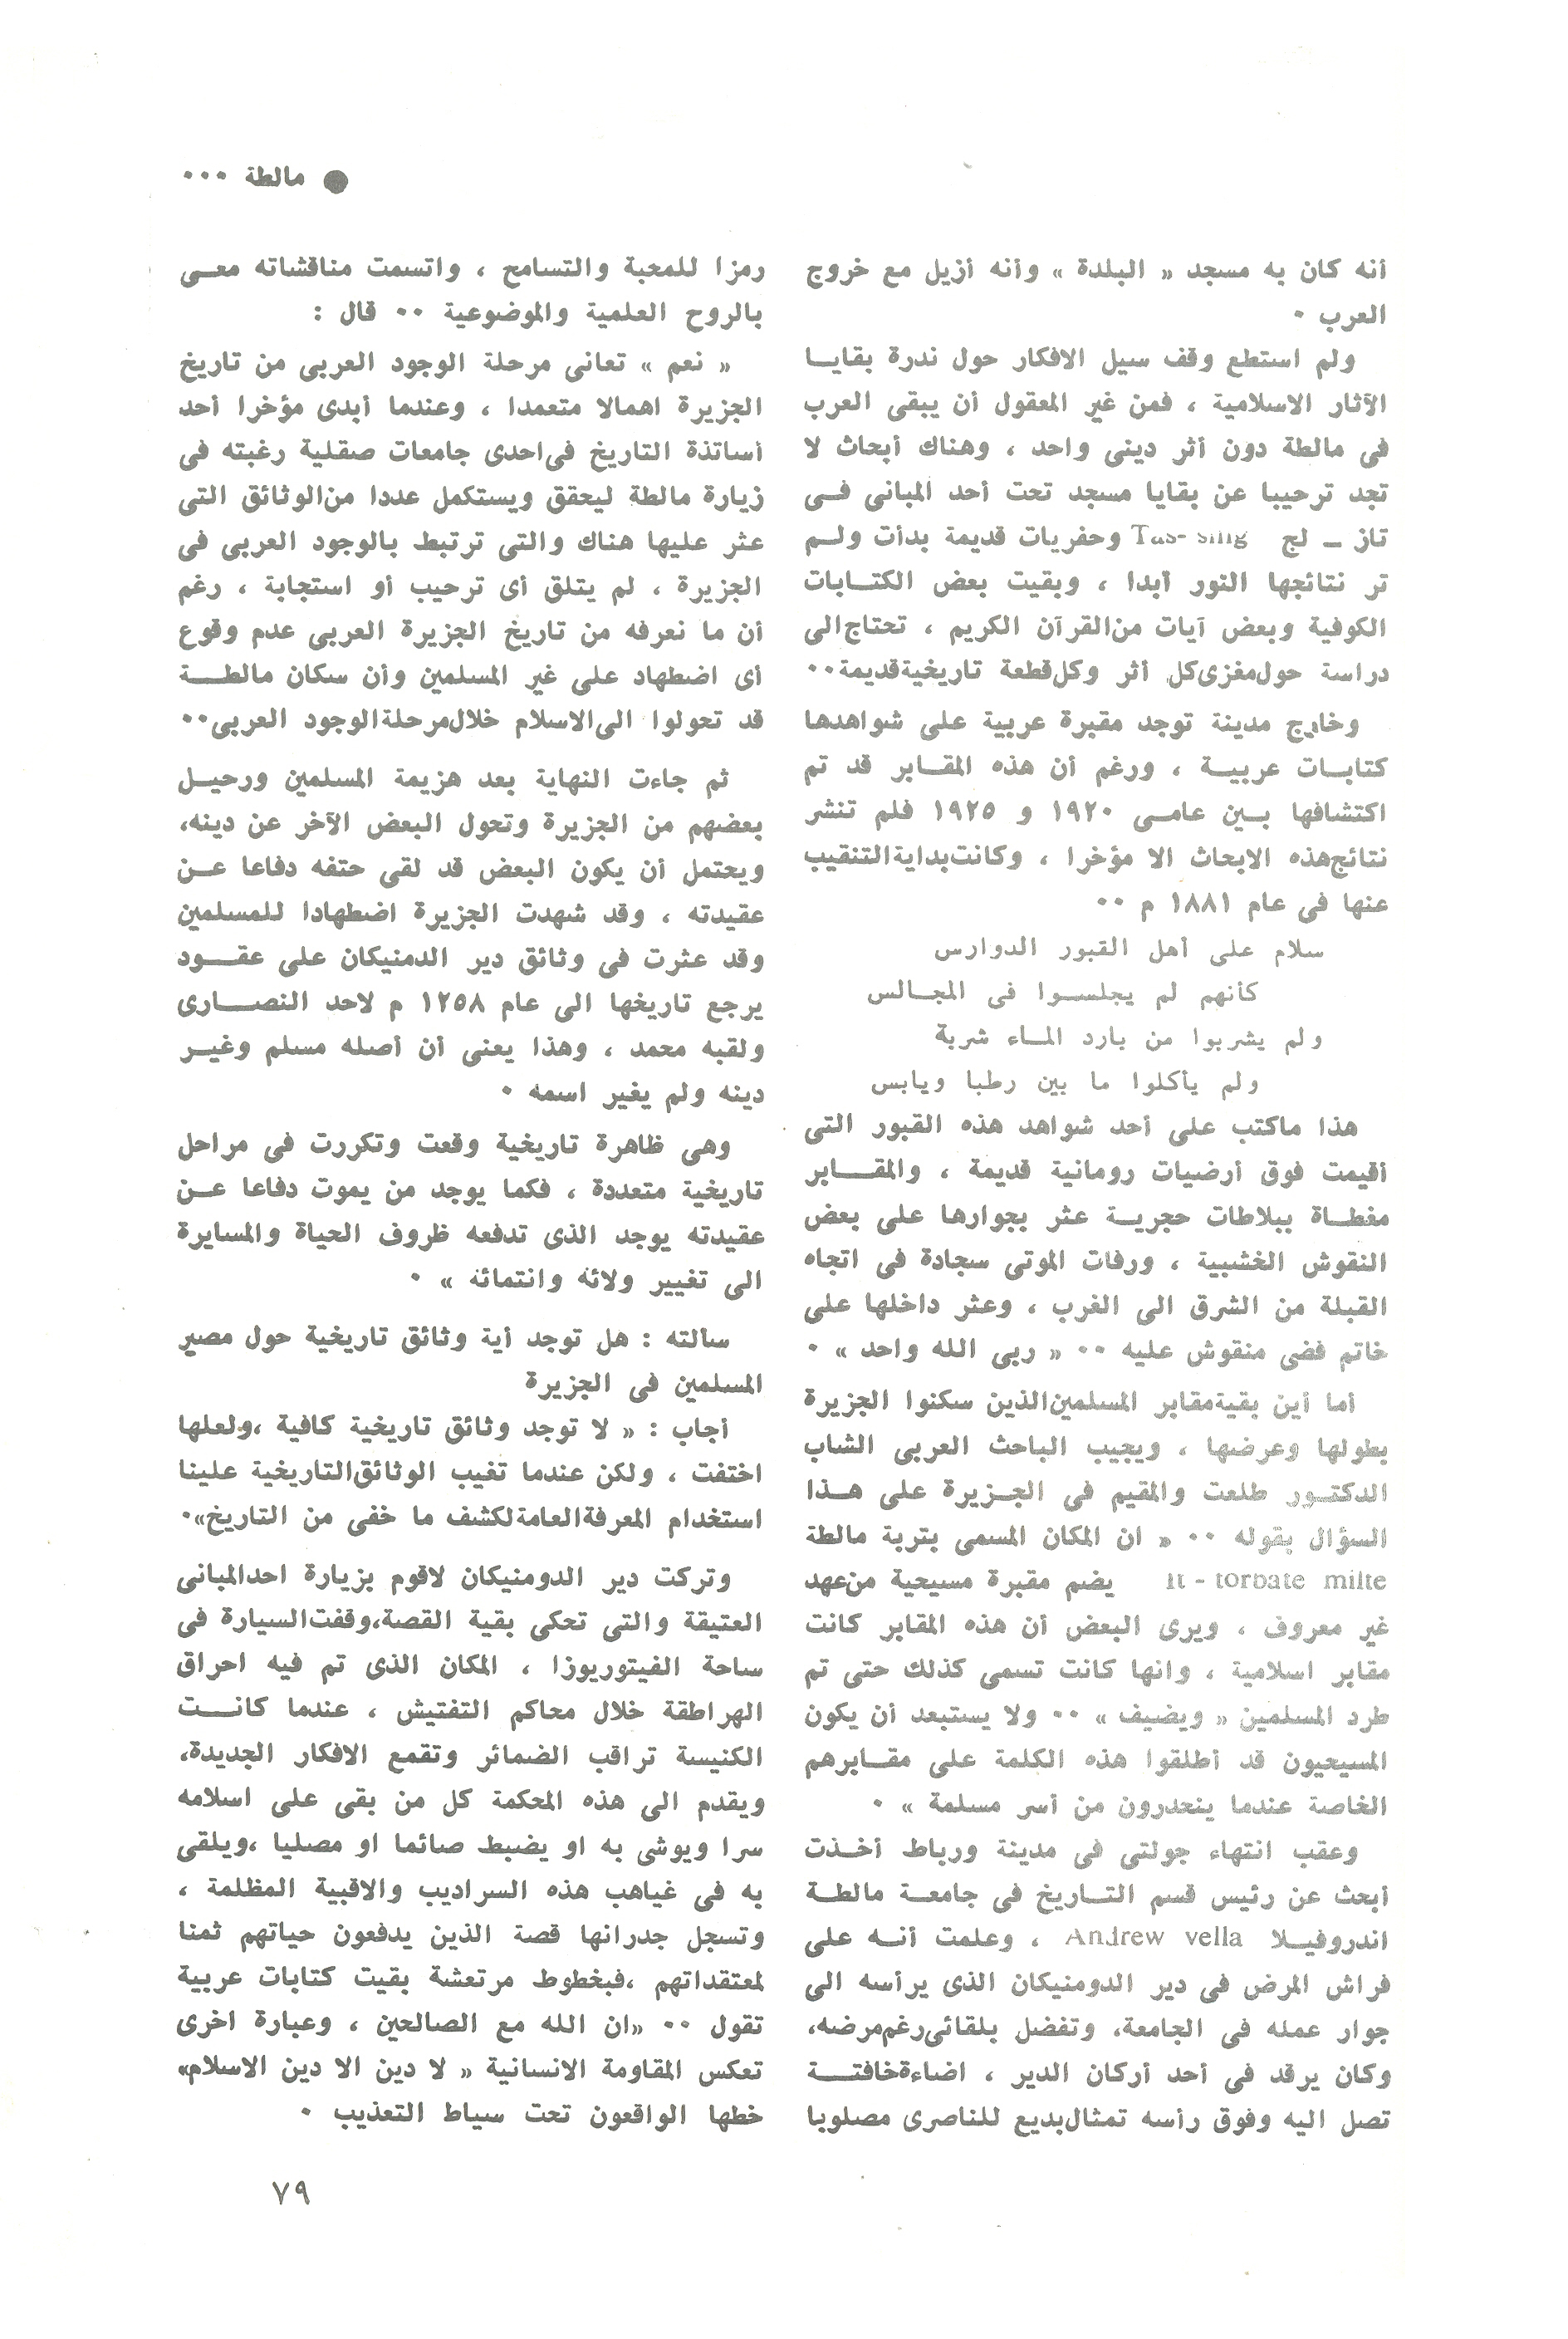 ● مالطة ٠٠٠
أنه كان به مسجد « البلدة » وأنه أزيل مع خروج
العرب ٠
ولم استطع وقف سيل الافكار حول ندرة بقايـا
الآثار الاسلامية ، فمن غير المعقول أن يبقى العرب
فى مالطة دون أثر دينى واحد ، وهناك أبحاث لا
تجد ترحيبا عن بقايا مسجد تحت أحد المبانى فـى
تاز ــ لج Tas- silg وحفريات قديمة بدأت ولـم
تر نتائجها النور أبدا ، وبقيت بعض الكتـابات
الكوفية وبعض آيات من القرآن الكريم ، تحتاج الى
دراسة حول مغزى كل أثر وكل قطعة تاريخية قديمة٠٠
وخارج مدينة توجد مقبرة عربية على شواهدها
كتابـات عربيـة ، ورغم أن هذه المقـابر قد تم
اكتشافها بـين عامـى ١٩٢٠ و ١٩٢٥ فلم تنشر
نتائج هذه الابحاث الا مؤخرا ، وكانت بداية التنقيب
عنها فى عام ١٨٨١ م ٠٠
سلام على أهل القبور الدوارس
كأنهم لم يجلسـوا فى المجـالس
ولم يشربوا من بارد المـاء شربة
ولم يأكلوا ما بين رطبا ويابس
هذا ماكتب على أحد شواهد هذه القبور التى
أقيمت فوق أرضيات رومانية قديمة ، والمقـابر
مغطـاة ببلاطات حجريـة عثر بجوارها على بعض
النقوش الخشبية ، ورفات الموتى سجادة فى اتجاه
القبلة من الشرق الى الغرب ، وعثر داخلها على
خاتم فضى منقوش عليه ٠٠ « ربى الله واحد » ٠
أما أين بقية مقابر المسلمين الذين سكنوا الجزيرة
بطولها وعرضها ، ويجيب الباحث العربى الشاب
الدكتـور طلعت والمقيم فى الجـزيرة على هـذا
السؤال بقوله ٠٠ « ان المكان المسمى بتربة مالطة
It - torbate milte يضم مقبرة مسيحية من عهد
غير معروف ، ويرى البعض أن هذه المقابر كانت
مقابر اسلامية ، وانها كانت تسمى كذلك حتى تم
طرد المسلمين « ويضيف » ٠٠ ولا يستبعد أن يكون
المسيحيون قد أطلقوا هذه الكلمة على مقـابرهم
الخاصة عندما ينحدرون من أسر مسلمة » ٠
وعقب انتهاء جولتى فى مدينة ورباط أخـذت
أبحث عن رئيس قسم التـاريخ فى جامعـة مالطـة
اندروفيـلا Andrew vella ، وعلمت أنـه على
فراش المرض فى دير الدومنيكان الذى يرأسه الى
جوار عمله فى الجامعة، وتفضل بلقائى رغم مرضه،
وكان يرقد فى أحد أركان الدير ، اضاءة خافتـة
تصل اليه وفوق رأسه تمثال بديع للناصرى مصلوبا
رمزا للمحبة والتسامح ، واتسمت مناقشاته معـى
بالروح العلمية والموضوعية ٠٠ قال :
« نعم » تعانى مرحلة الوجود العربى من تاريخ
الجزيرة اهمالا متعمدا ، وعندما أبدى مؤخرا أحد
أساتذة التاريخ فى احدى جامعات صقلية رغبته فى
زيارة مالطة ليحقق ويستكمل عددا من الوثائق التى
عثر عليها هناك والتى ترتبط بالوجود العربى فى
الجزيرة ، لم يتلق أى ترحيب أو استجابة ، رغم
أن ما نعرفه من تاريخ الجزيرة العربى عدم وقوع
أى اضطهاد على غير المسلمين وأن سكان مالطـة
قد تحولوا الى الاسلام خلال مرحلة الوجود العربى٠٠
ثم جاءت النهاية بعد هزيمة المسلمين ورحيـل
بعضهم من الجزيرة وتحول البعض الآخر عن دينه،
ويحتمل أن يكون البعض قد لقى حتفه دفاعا عـن
عقيدته ، وقد شهدت الجزيرة اضطهادا للمسلمين
وقد عثرت فى وثائق دير الدمنيكان على عقـود
يرجع تاريخها الى عام ١٢٥٨ م لاحد النصـارى
ولقبه محمد ، وهذا يعنى أن أصله مسلم وغيـر
دينه ولم يغير اسمه ٠
وهى ظاهرة تاريخية وقعت وتكررت فى مراحل
تاريخية متعددة ، فكما يوجد من يموت دفاعا عـن
عقيدته يوجد الذى تدفعه ظروف الحياة والمسايرة
الى تغيير ولائه وانتمائه » ٠
سألته : هل توجد أية وثائق تاريخية حول مصير
المسلمين فى الجزيرة
أجاب : « لا توجد وثائق تاريخية كافية ،ولعلها
اختفت ، ولكن عندما تغيب الوثائق التاريخية علينا
استخدام المعرفة العامة لكشف ما خفى من التاريخ»٠
وتركت دير الدومنيكان لاقوم بزيارة احد المبانى
العتيقة والتى تحكى بقية القصة،وقفت السيارة فى
ساحة الفيتوريوزا ، المكان الذى تم فيه احراق
الهراطقة خلال محاكم التفتيش ، عندما كانـت
الكنيسة تراقب الضمائر وتقمع الافكار الجديدة،
ويقدم الى هذه المحكمة كل من بقى على اسلامه
سرا ويوشى به او يضبط صائما او مصليا ،ويلقى
به فى غياهب هذه السراديب والاقبية المظلمة ،
وتسجل جدرانها قصة الذين يدفعون حياتهم ثمنا
لمعتقداتهم ،فبخطوط مرتعشة بقيت كتابات عربية
تقول ٠٠ «ان الله مع الصالحين ، وعبارة اخرى
تعكس المقاومة الانسانية « لا دين الا دين الاسلام»
خطها الواقعون تحت سياط التعذيب ٠
٧٩